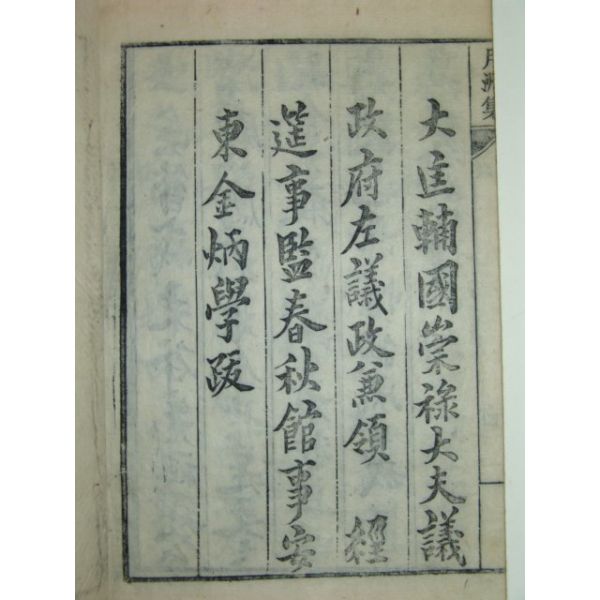 大匡輔國崇祿大夫議
政府左議政兼領 經
筵事監春秋館事安
東金炳學跋
集